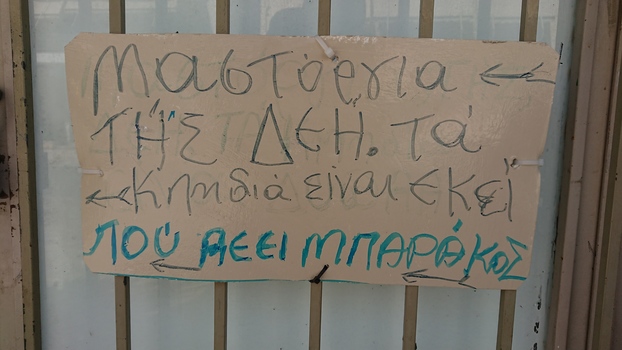 Μαστόργια
ΤΗΣ ΔΕΗ. τά
Κληδιά είναι εκεί
ΠΟΥ ΛΕΕΙ ΜΠΑΡΑΚΟΣ